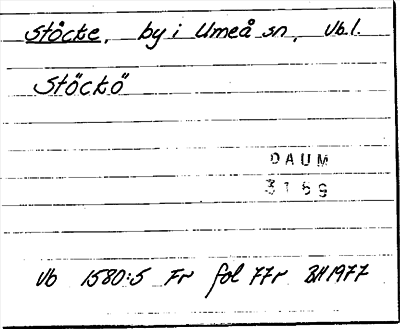 Stöcke, by i Umeå sn, Vb.l.
Stöckö
DAUM
3159
Vb 1580:5 Fr fol 77r BH1977